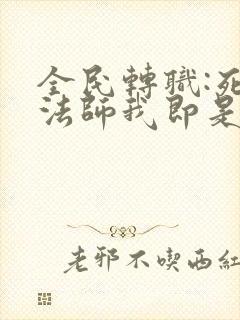 全民轉職:死
法師我即是
老邪不喫西紅